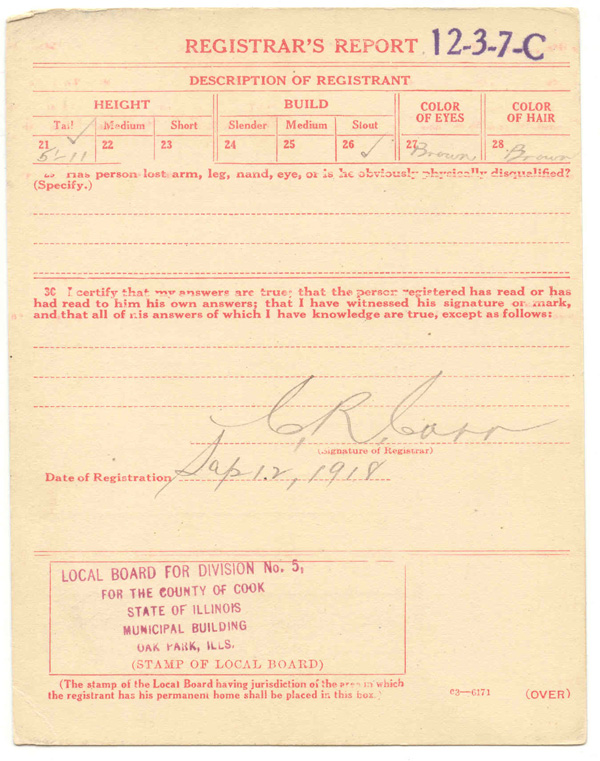 REGISTRAR'S REPORT 12-3-7-C
DESCRIPTION OF REGISTRANT
HEIGHT BUILD COLOR OF EYES COLOR OF HAIR
Tall Medium Short Slender Medium Stout
21 22 23 24 25 26 27 28
5'-11 ✓ ✓ Brown Brown
29 Has person lost arm, leg, hand, eye, or is he obviously physically disqualified?
(Specify.)
30 I certify that my answers are true; that the person registered has read or has
had read to him his own answers; that I have witnessed his signature or mark,
and that all of his answers of which I have knowledge are true, except as follows:
C. R. Carr
(Signature of Registrar)
Date of Registration Sep 12, 1918
LOCAL BOARD FOR DIVISION No. 5,
FOR THE COUNTY OF COOK
STATE OF ILLINOIS
MUNICIPAL BUILDING
OAK PARK, ILLS.
(STAMP OF LOCAL BOARD)
(The stamp of the Local Board having jurisdiction of the area in which
the registrant has his permanent home shall be placed in this box.)
03—6171 (OVER)